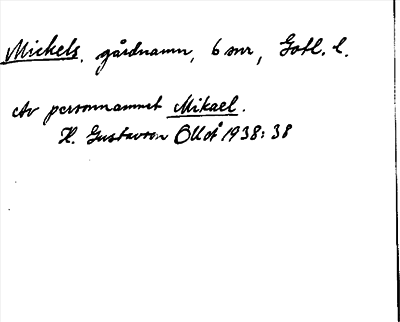 Mickels, gårdnamn, 6 snr, Gotl. l.
Av personnamnet Mikael.
H. Gustavson OUÅ 1938:38